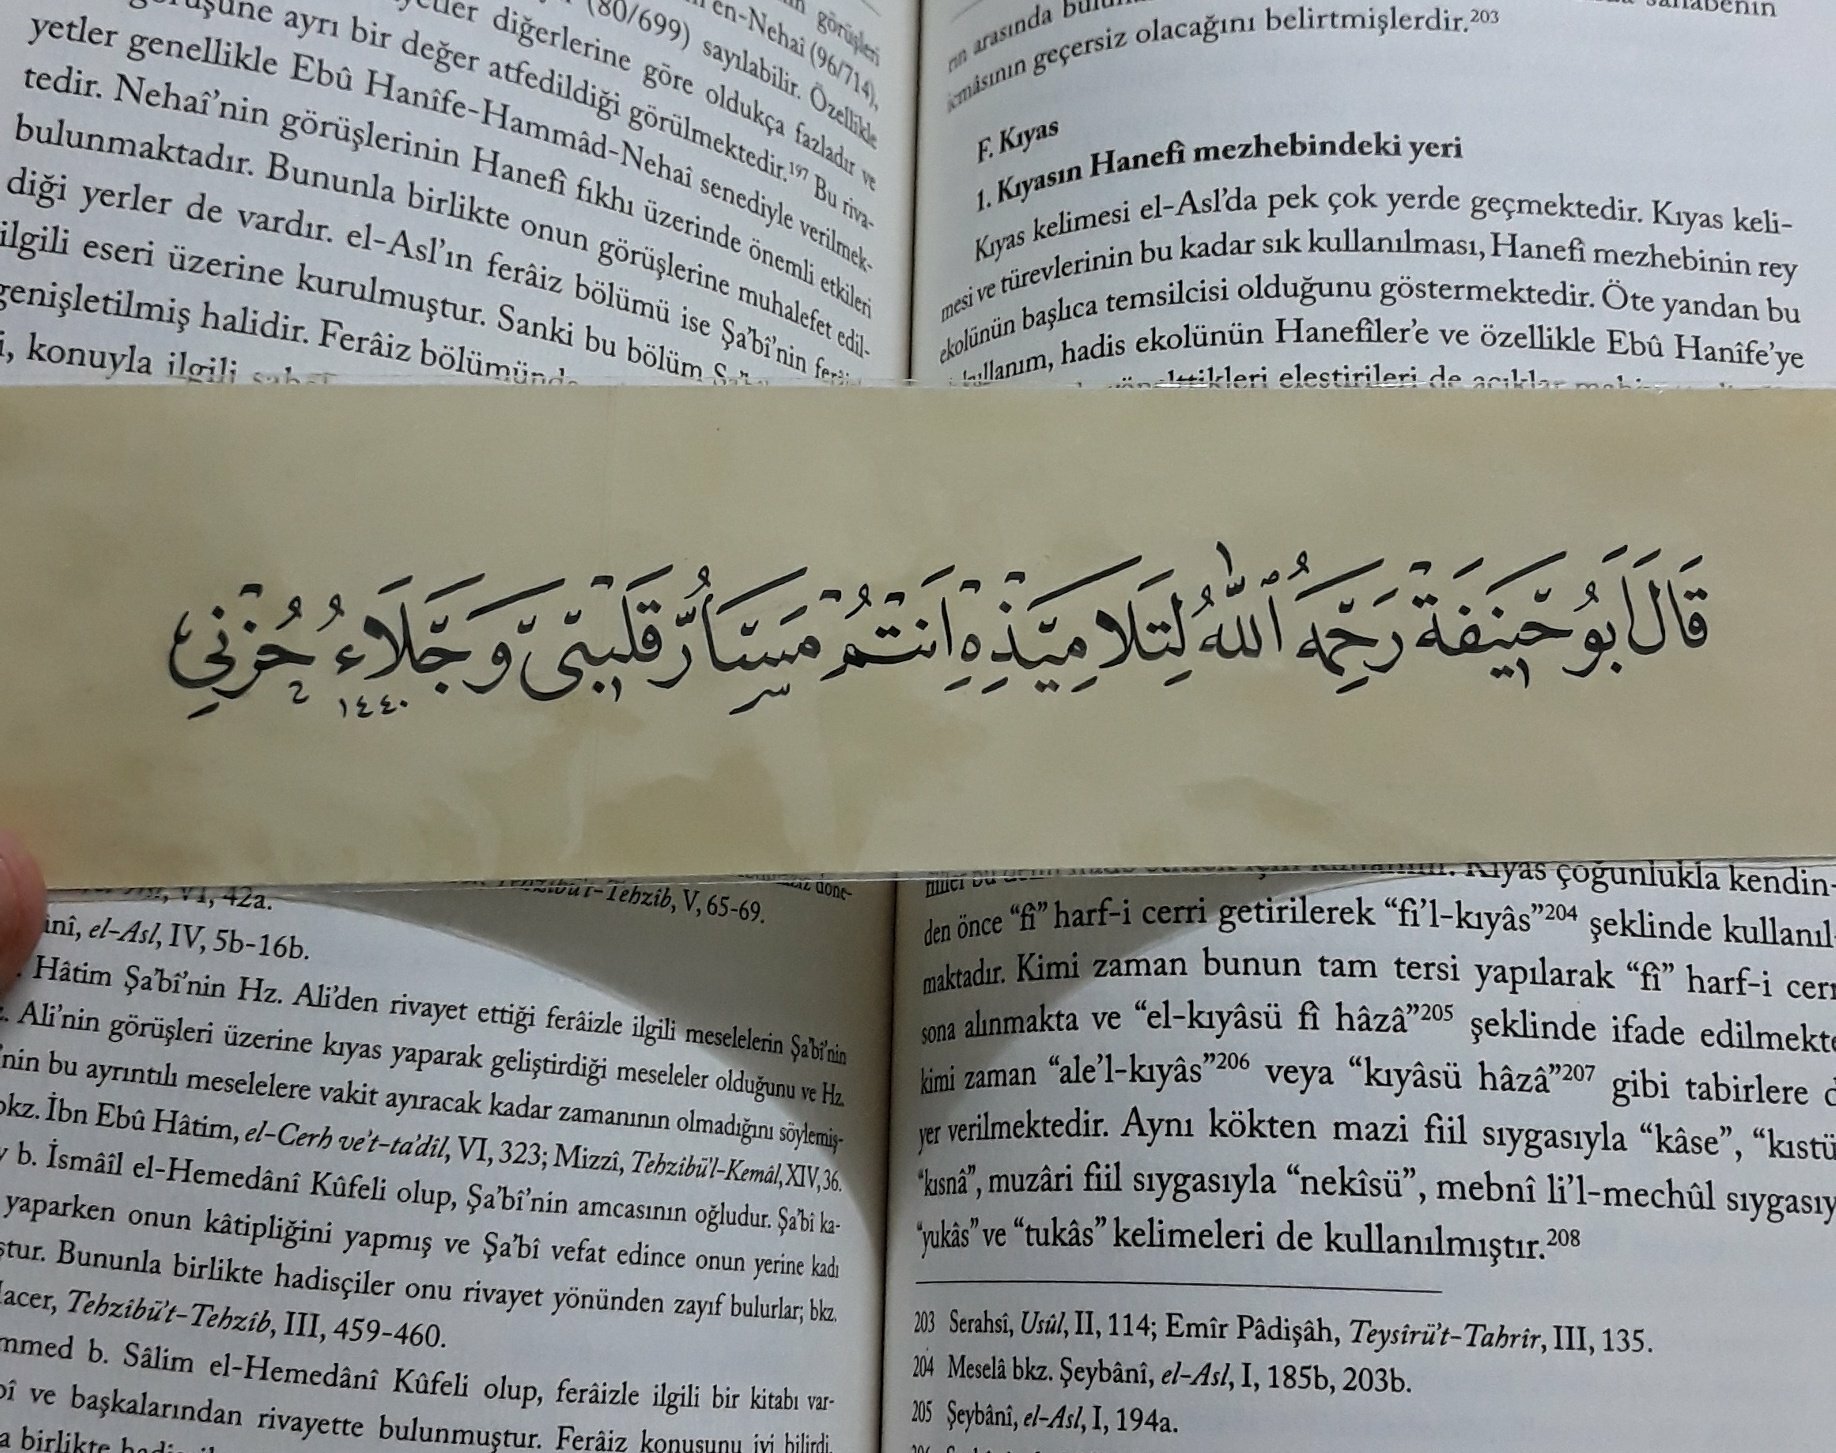 görüşleri
en-Nehaî (96/714),
(80/699) sayılabilir. Özellikle
diğerlerine göre oldukça fazladır ve
ayrı bir değer atfedildiği görülmektedir.¹⁹⁷ Bu riva-
yetler genellikle Ebû Hanîfe-Hammâd-Nehaî senediyle verilmek-
tedir. Nehaî’nin görüşlerinin Hanefî fıkhı üzerinde önemli etkileri
bulunmaktadır. Bununla birlikte onun görüşlerine muhalefet edil-
diği yerler de vardır. el-Asl’ın ferâiz bölümü ise Şa’bî’nin
ilgili eseri üzerine kurulmuştur. Sanki bu bölüm
genişletilmiş halidir. Ferâiz bölümünde
konuyla ilgili
arasında
icmâsının geçersiz olacağını belirtmişlerdir.²⁰³
F. Kıyas
1. Kıyasın Hanefî mezhebindeki yeri
Kıyas kelimesi el-Asl’da pek çok yerde geçmektedir. Kıyas keli-
mesi ve türevlerinin bu kadar sık kullanılması, Hanefî mezhebinin rey
ekolünün başlıca temsilcisi olduğunu göstermektedir. Öte yandan bu
kullanım, hadis ekolünün Hanefîler’e ve özellikle Ebû Hanîfe’ye
yönelttikleri eleştirileri de
قَالَ اَبُو حَنِيفَةَ رَحِمَهُ ٱللّٰهُ لِتَلَامِيذِهِ اَنْتُمْ مَسَارُّ قَلْبِي وَجَلَاءُ حُزْنِي
١٤٤٠
VI, 42a.
Tehzîbü’t-Tehzîb, V, 65-69.
el-Asl, IV, 5b-16b.
Hâtim Şa’bî’nin Hz. Ali’den rivayet ettiği ferâizle ilgili meselelerin Şa’bî’nin
Ali’nin görüşleri üzerine kıyas yaparak geliştirdiği meseleler olduğunu ve Hz.
’nin bu ayrıntılı meselelere vakit ayıracak kadar zamanının olmadığını söylemiş-
bkz. İbn Ebû Hâtim, el-Cerh ve’t-ta’dîl, VI, 323; Mizzî, Tehzîbü’l-Kemâl, XIV, 36.
b. İsmâîl el-Hemedânî Kûfeli olup, Şa’bî’nin amcasının oğludur. Şa’bî ka-
yaparken onun kâtipliğini yapmış ve Şa’bî vefat edince onun yerine kadı
Bununla birlikte hadisçiler onu rivayet yönünden zayıf bulurlar; bkz.
Tehzîbü’t-Tehzîb, III, 459-460.
b. Sâlim el-Hemedânî Kûfeli olup, ferâizle ilgili bir kitabı var-
ve başkalarından rivayette bulunmuştur. Ferâiz konusunu iyi bilirdi.
birlikte
Kıyas çoğunlukla kendin-
den önce “fî” harf-i cerri getirilerek “fi’l-kıyâs”²⁰⁴ şeklinde kullanıl-
maktadır. Kimi zaman bunun tam tersi yapılarak “fî” harf-i cerri
sona alınmakta ve “el-kıyâsü fî hâzâ”²⁰⁵ şeklinde ifade edilmekte
kimi zaman “ale’l-kıyâs”²⁰⁶ veya “kıyâsü hâzâ”²⁰⁷ gibi tabirlere
yer verilmektedir. Aynı kökten mazi fiil sıygasıyla “kâse”, “kıstü
“kısnâ”, muzâri fiil sıygasıyla “nekîsü”, mebnî li’l-mechûl
“yukâs” ve “tukâs” kelimeleri de kullanılmıştır.²⁰⁸
203 Serahsî, Usûl, II, 114; Emîr Pâdişâh, Teysîrü’t-Tahrîr, III, 135.
204 Meselâ bkz. Şeybânî, el-Asl, I, 185b, 203b.
205 Şeybânî, el-Asl, I, 194a.